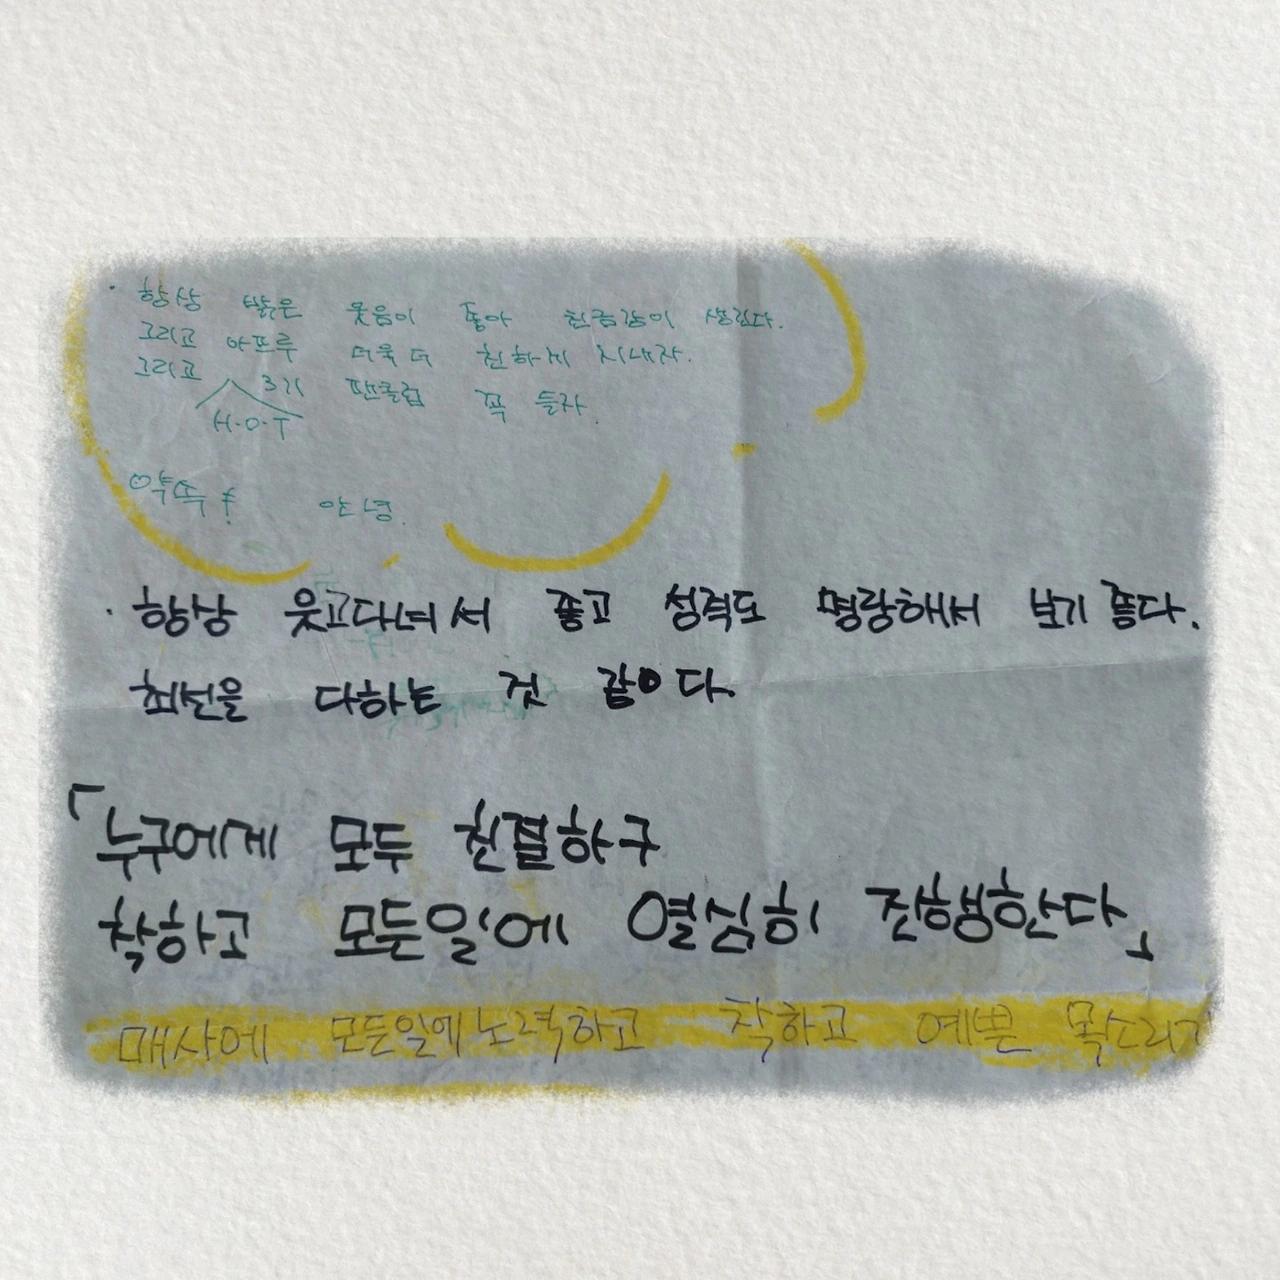 · 항상 밝은 웃음이 좋아 친근감이 생긴다.
그리고 아프루 더욱 더 친하게 지내자.
그리고 3기 팬클럽 꼭 들자.
H.O.T
약속! 안녕.
· 항상 웃고다녀서 좋고 성격도 명랑해서 보기 좋다.
최선을 다하는 것 같이다.
「누구에게 모두 친절하구
착하고 모든일에 열심히 진행한다」
매사에 모든일에 노력하고 착하고 예쁜 목소리가